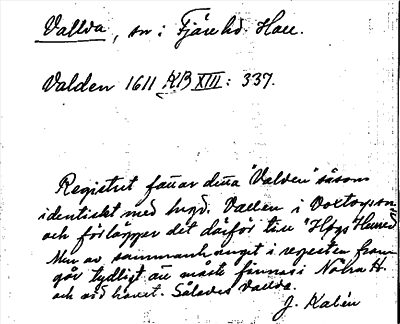 Vallda, sn i Fjäre hd. Hall.
Valden 1611 KB XIII: 337.
Registret fattar detta "Valden" såsom
identiskt med bygd. Vallen i Voxtorpssn
och förlägger det därför till "Högs Härad
Men av sammanhanget i regesten fram-
går tydligt att måste finnas i Norra H.
och vid havet. Således Vallda.
J. Kalén